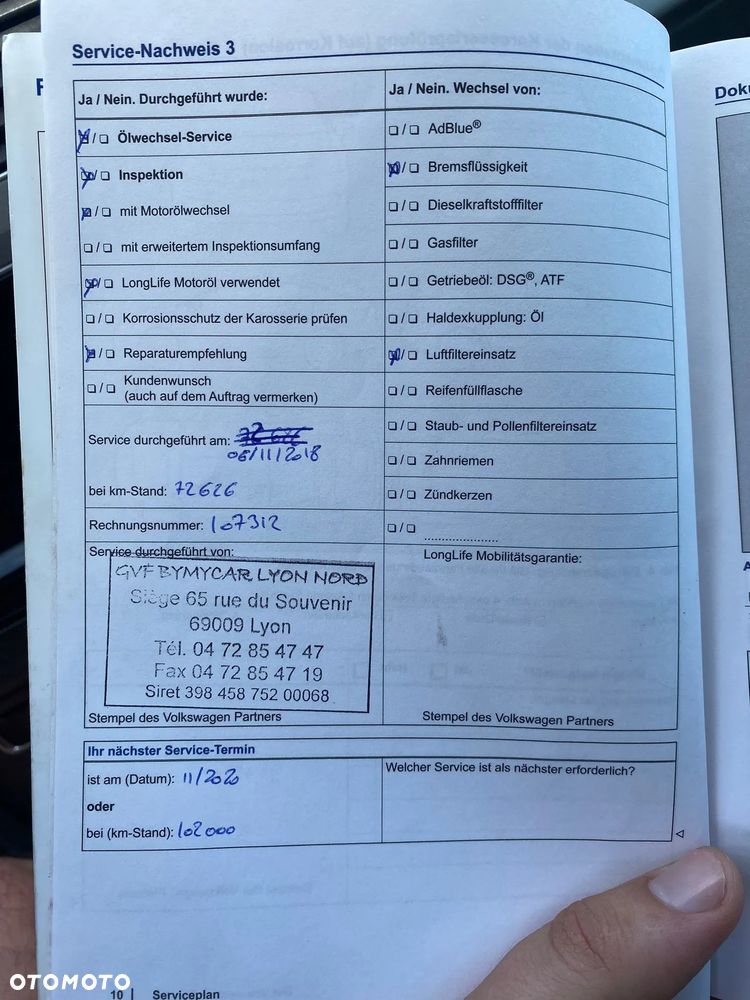 Service-Nachweis 3
Ja / Nein. Durchgeführt wurde:
Ölwechsel-Service
Inspektion
mit Motorölwechsel
mit erweitertem Inspektionsumfang
LongLife Motoröl verwendet
Korrosionsschutz der Karosserie prüfen
Reparaturempfehlung
Kundenwunsch
(auch auf dem Auftrag vermerken)
Service durchgeführt am:
06/11/2018
bei km-Stand: 72626
Rechnungsnummer: 107312
Service durchgeführt von:
GVF BYMYCAR LYON NORD
Siège 65 rue du Souvenir
69009 Lyon
Tél. 04 72 85 47 47
Fax 04 72 85 47 19
Siret 398 458 752 00068
Stempel des Volkswagen Partners
Ja / Nein. Wechsel von:
AdBlue®
Bremsflüssigkeit
Dieselkraftstofffilter
Gasfilter
Getriebeöl: DSG®, ATF
Haldexkupplung: Öl
Luftfiltereinsatz
Reifenfüllflasche
Staub- und Pollenfiltereinsatz
Zahnriemen
Zündkerzen
LongLife Mobilitätsgarantie:
Stempel des Volkswagen Partners
Ihr nächster Service-Termin
ist am (Datum): 11/2020
oder
bei (km-Stand): 102000
Welcher Service ist als nächster erforderlich?
10 | Serviceplan
Doku
OTOMOTO